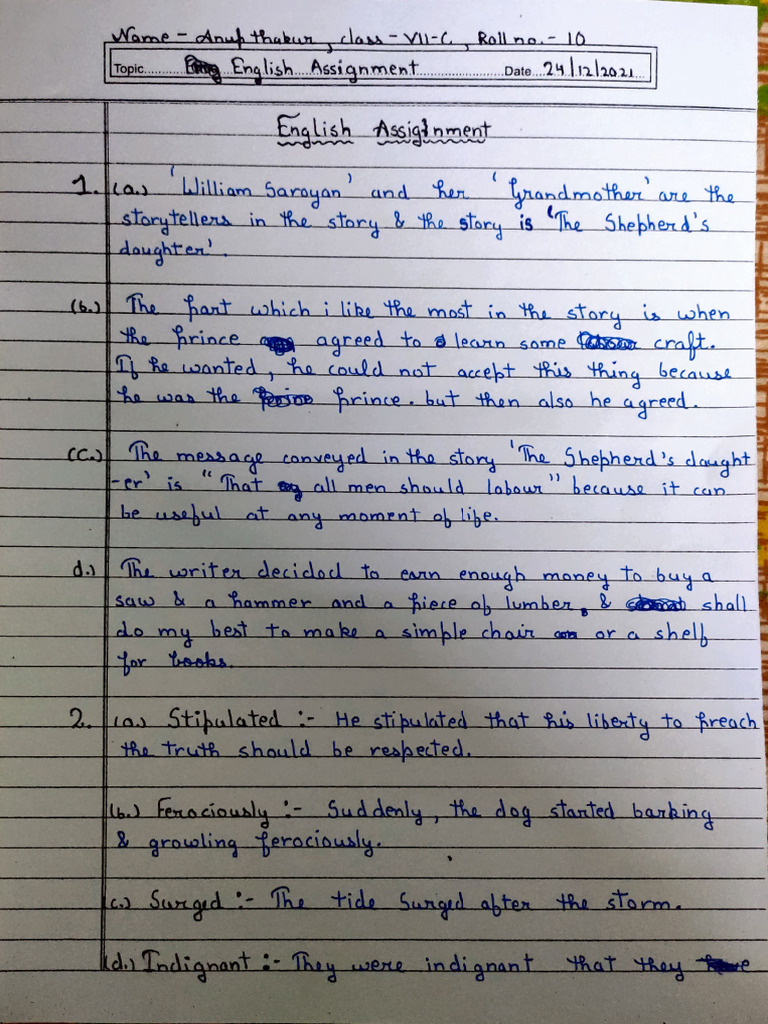 Name - Anup thakur, class - VII-C, Roll no. - 10
Topic........ English Assignment........Date...24/12/2021...
English Assignment
1. (a.) 'William Saroyan' and her 'Grandmother' are the
storytellers in the story & the story is 'The Shepherd's
daughter'.
(b.) The part which i like the most in the story is when
the prince agreed to learn some craft.
If he wanted, he could not accept this thing because
he was the prince. but then also he agreed.
(C.) The message conveyed in the story 'The Shepherd's daught
-er' is "That all men should labour" because it can
be useful at any moment of life.
d.) The writer decided to earn enough money to buy a
saw & a hammer and a piece of lumber, & shall
do my best to make a simple chair or a shelf
for books.
2. (a.) Stipulated :- He stipulated that his liberty to preach
the truth should be respected.
(b.) Ferociously :- Suddenly, the dog started barking
& growling ferociously.
(c.) Surged :- The tide Surged after the storm.
(d.) Indignant :- They were indignant that they